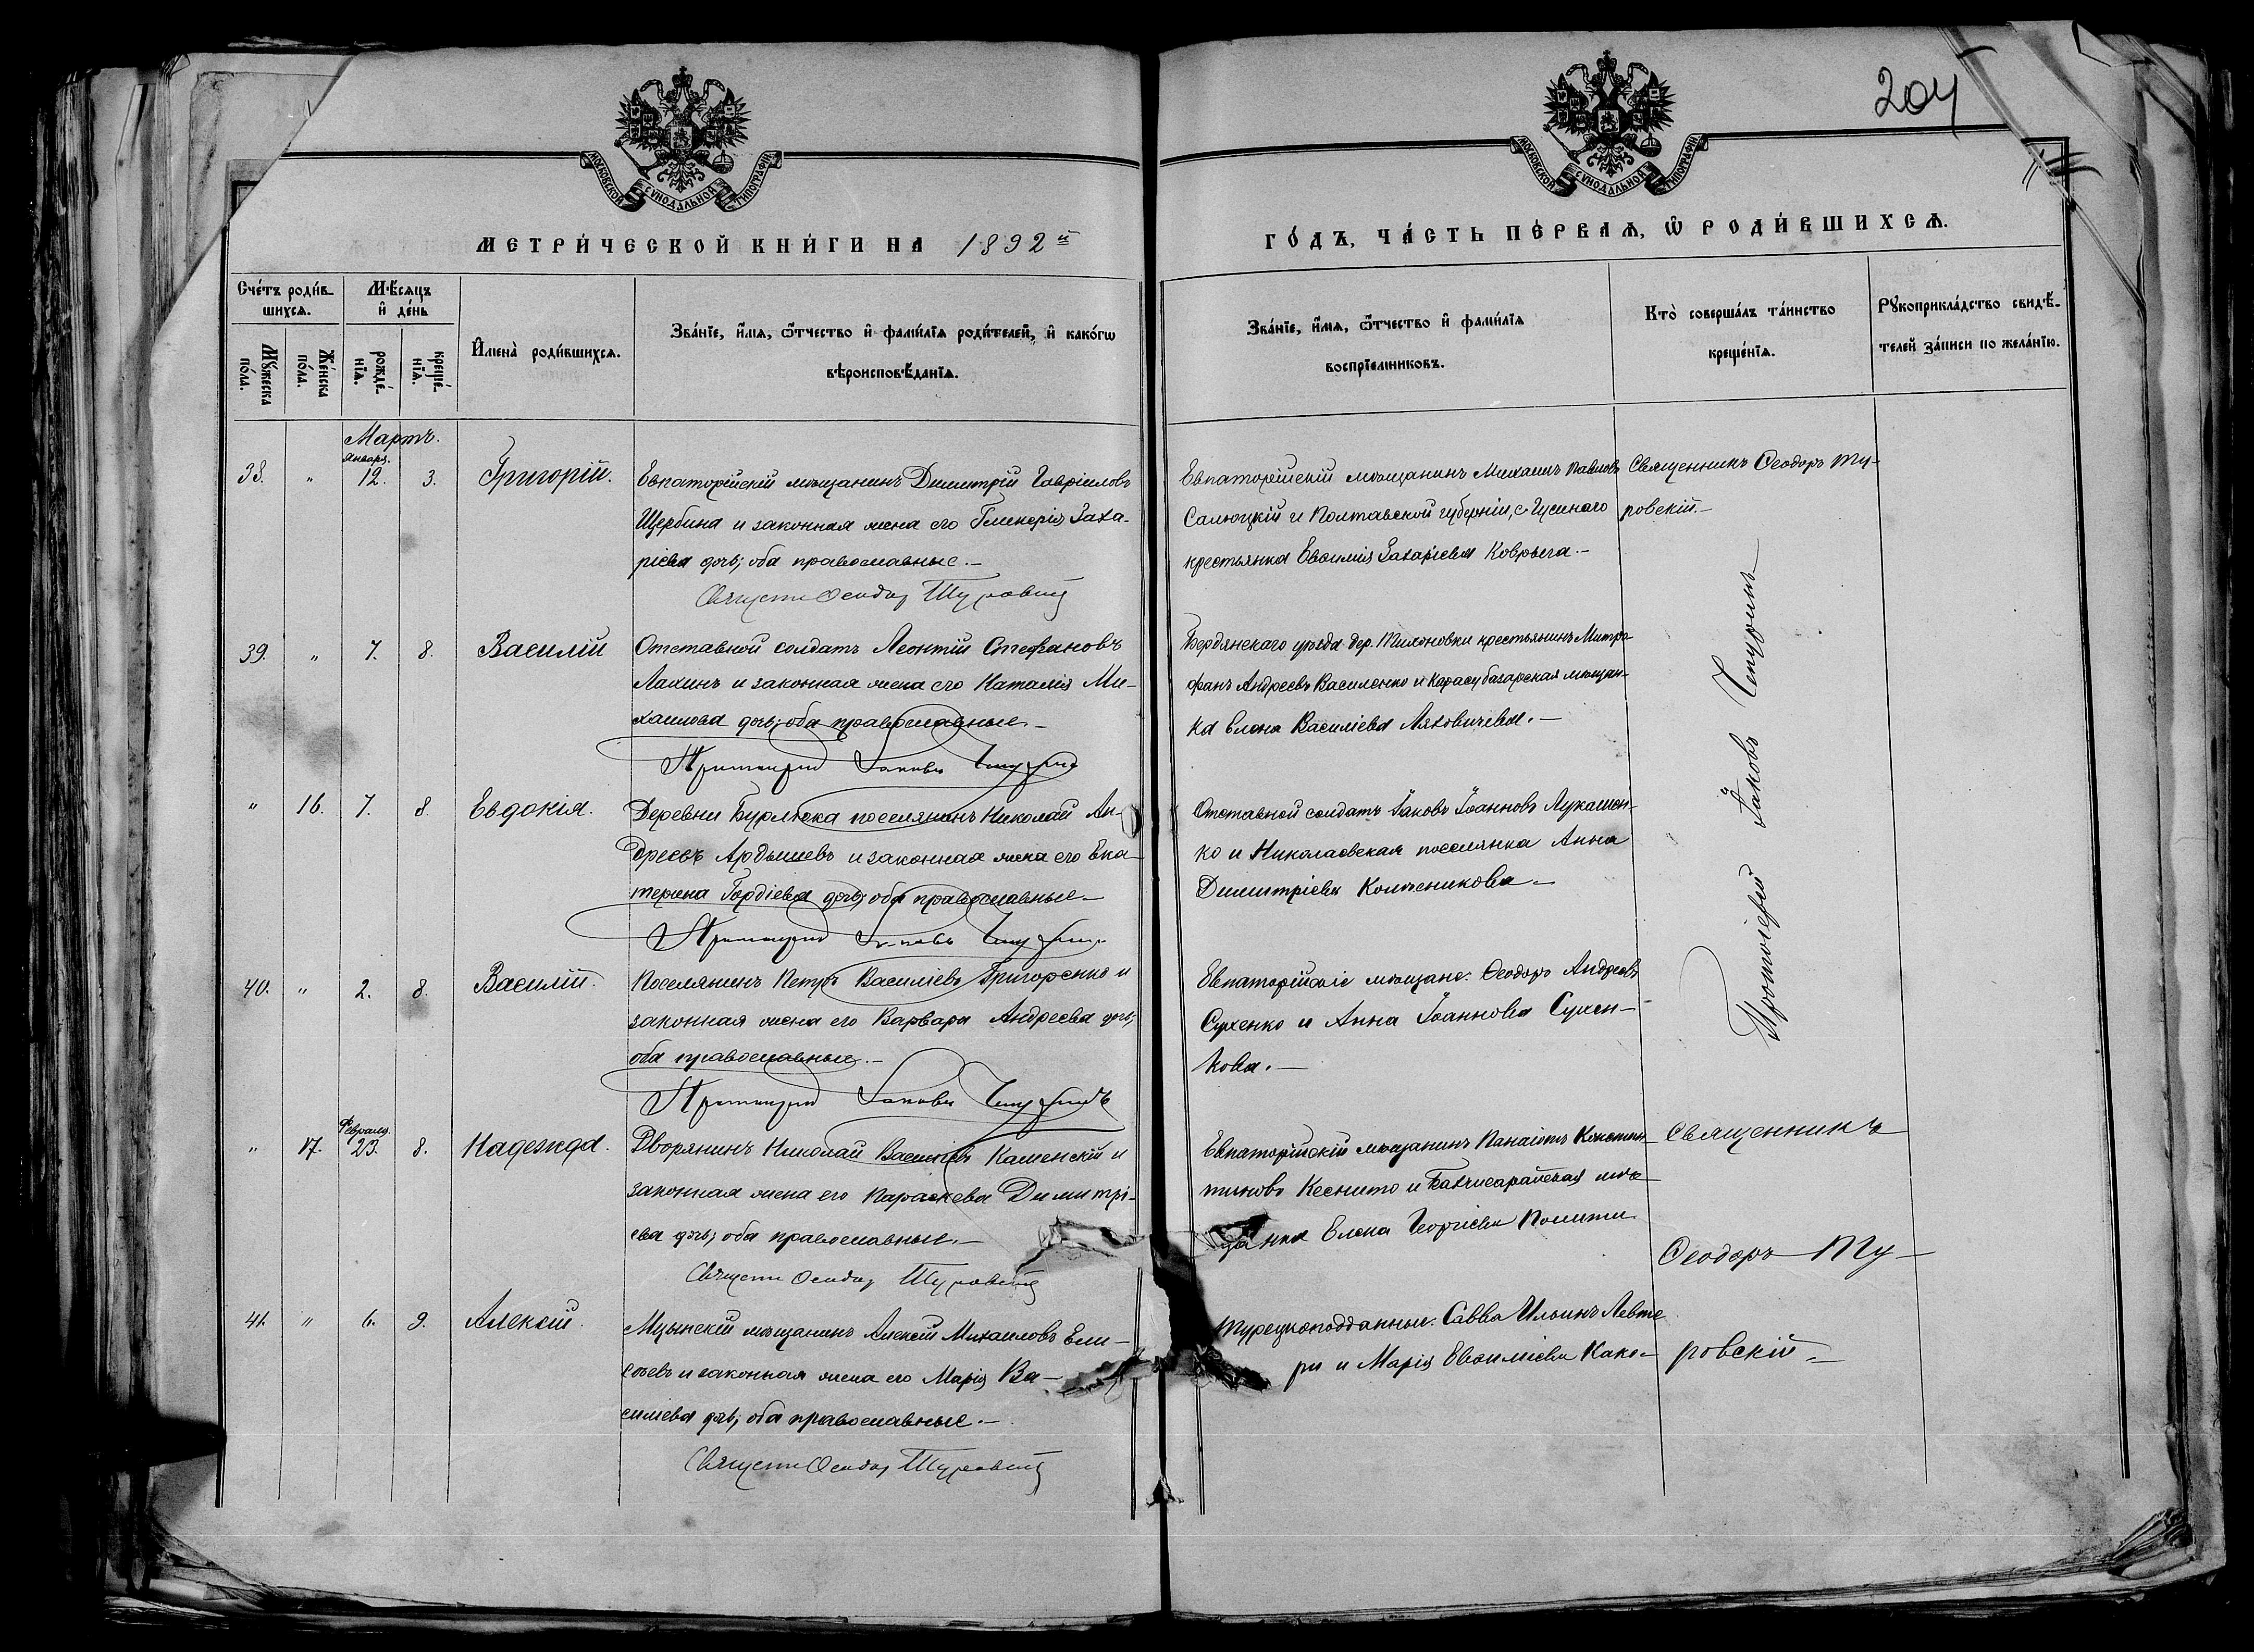 204
МОСКОВСКОЙ СѴНОДАЛЬНОЙ ТИПОГРАФІИ
МОСКОВСКОЙ СѴНОДАЛЬНОЙ ТИПОГРАФІИ
МЕТРИ́ЧЕСКОЙ КНИ́ГИ НА 1892й
ГО́ДЪ, ЧА́СТЬ ПЕ́РВАѦ, Ѡ РОДИ́ВШИХСѦ.
Сче́тъ роди́в-
шихсѧ.
Мꙋ́жеска по́ла.
Же́нска по́ла.
Мѣ́сѧцъ
и҆ де́нь
рожде́-
нїѧ.
креще́-
нїѧ.
И҆мена̀ роди́вшихсѧ.
Зва́нїе, и҆́мѧ, ѻ҆́тчество и҆ фами́лїѧ роди́телей, и҆ како́гѡ
вѣроисповѣ́данїѧ.
Зва́нїе, и҆́мѧ, ѻ҆́тчество и҆ фами́лїѧ
воспрїе́мниковъ.
Кто̀ соверша́лъ та́инство
креще́нїѧ.
Рꙋкоприкла́дство свидѣ́-
телей за́писи по жела́нїю.
Мартъ.
Января.
38. " 12. 3. Григорій.
Евпаторійскій мѣщанинъ Димитрій Гавріиловъ
Щербина и законная жена его Гликерія Заха-
ріева дочь; оба православные.-
Священ Ѳеодор Туровскій
Евпаторійскій мѣщанинъ Михаилъ Павловъ
и Полтавской губерніи, с. Гусинаго
крестьянка Евфимія Захаріева Коврыга.-
Священникъ Ѳеодоръ Ту-
ровскій.-
39. " 7. 8. Василій
Отставной солдатъ Леонтій Стефановъ
Лахинъ и законная жена его Наталія Ми-
хаилова дочь; оба православные.-
Протоіерей Іаковъ Чепуринъ
Бердянскаго уѣзда дер. Тихоновки крестьянинъ Митро-
фанъ Андреевъ Василенко и Карасубазарская мѣщан-
ка Елена Василіева Ляховичева.-
Протоіерей Іаковъ Чепуринъ
" 16. 7. 8. Евдокія.
Деревни Бурлюка поселянинъ Николай Ан-
дреевъ Ардышевъ и законная жена его Ека-
терина Гордіева дочь; оба православные-
Протоіерей Іаковъ Чепуринъ
Отставной солдатъ Іаковъ Іоанновъ Лукашен-
ко и Николаевская поселянка Анна
Димитріева Колесникова.-
40. " 2. 8. Василій.
Поселянинъ Петръ Василіевъ Григоренко и
законная жена его Варвара Андреева дочь;
оба православные.-
Протоіерей Іаковъ Чепуринъ
Евпаторійскіе мѣщане: Ѳеодоръ Андреевъ
Сухенко и Анна Іоаннова Сушен-
кова.-
Февраля.
" 17. 23. 8. Надежда.
Дворянинъ Николай Василіевъ Каменскій и
законная жена его Параскева Димитрі-
ева дочь; оба православные.-
Священ Ѳеодор Туровскій
Евпаторійскій мѣщанинъ Панаіотъ Констан-
тиновъ и Бахчисарайская мѣ-
щанка Елена Георгіева Полити
Священникъ
Ѳеодоръ Ту-
ровскій.-
41. " 6. 9. Алексій.
Мцынскій мѣщанинъ Алексій Михаиловъ Ели-
сѣевъ и законная жена его Марія Ва-
силіева дочь; оба православные.-
Священ Ѳеодор Туровскій
Турецкоподданные: Савва Ильинъ Левте
ри и Марія Евфиміева Како-